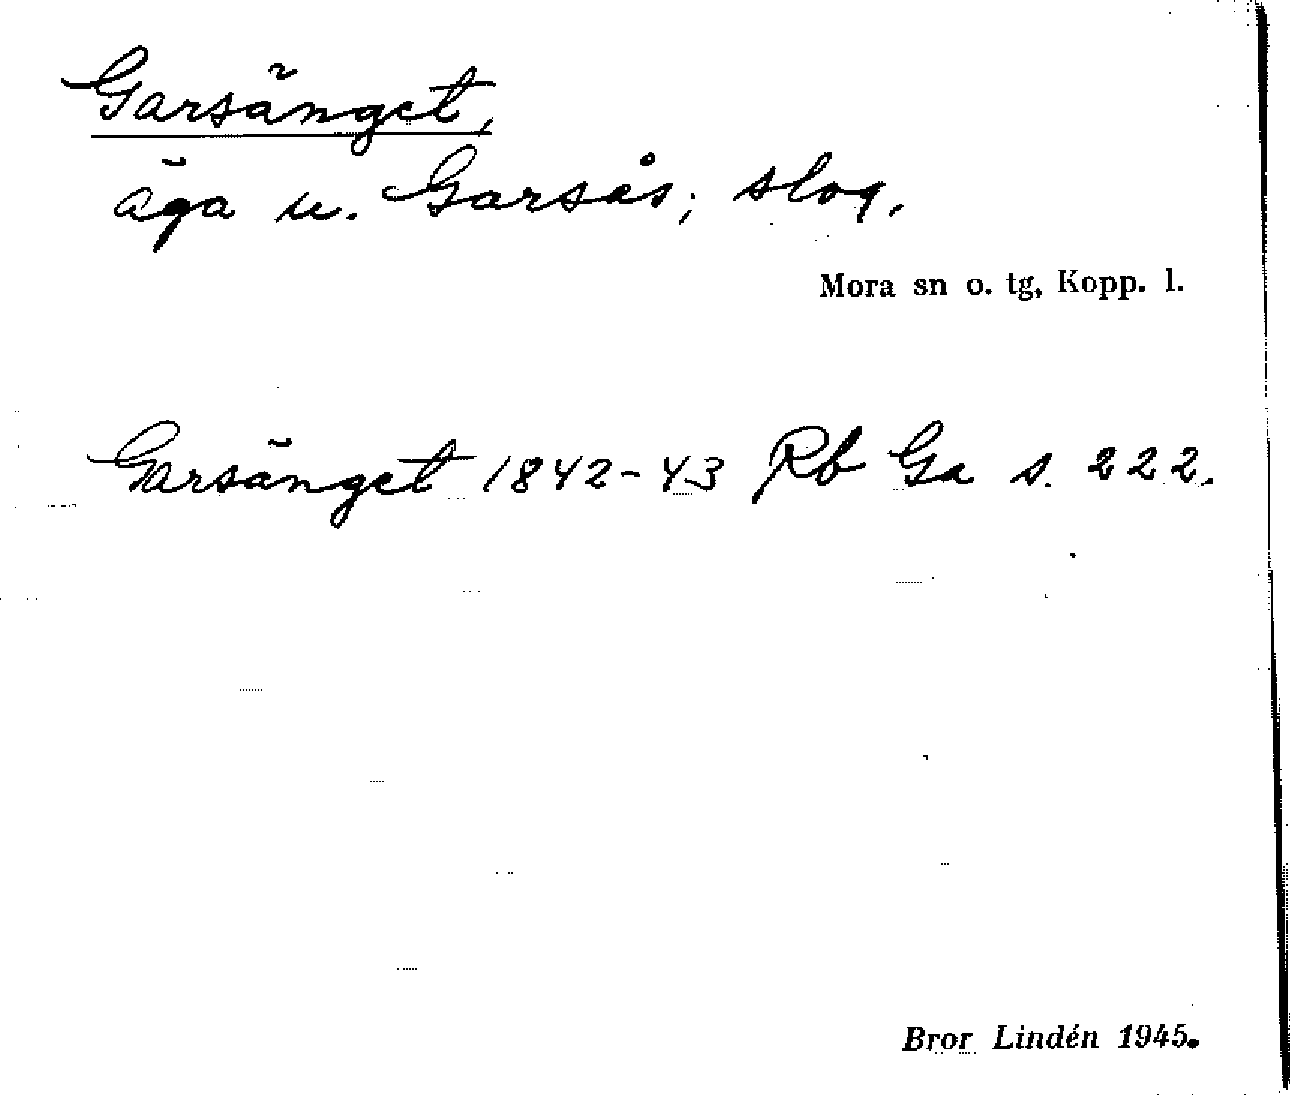 Garsänget,
äga u. Garsås; slog.
Mora sn o. tg, Kopp. l.
Garsänget 1842-43 Rb Ga s. 222.
Bror Lindén 1945.